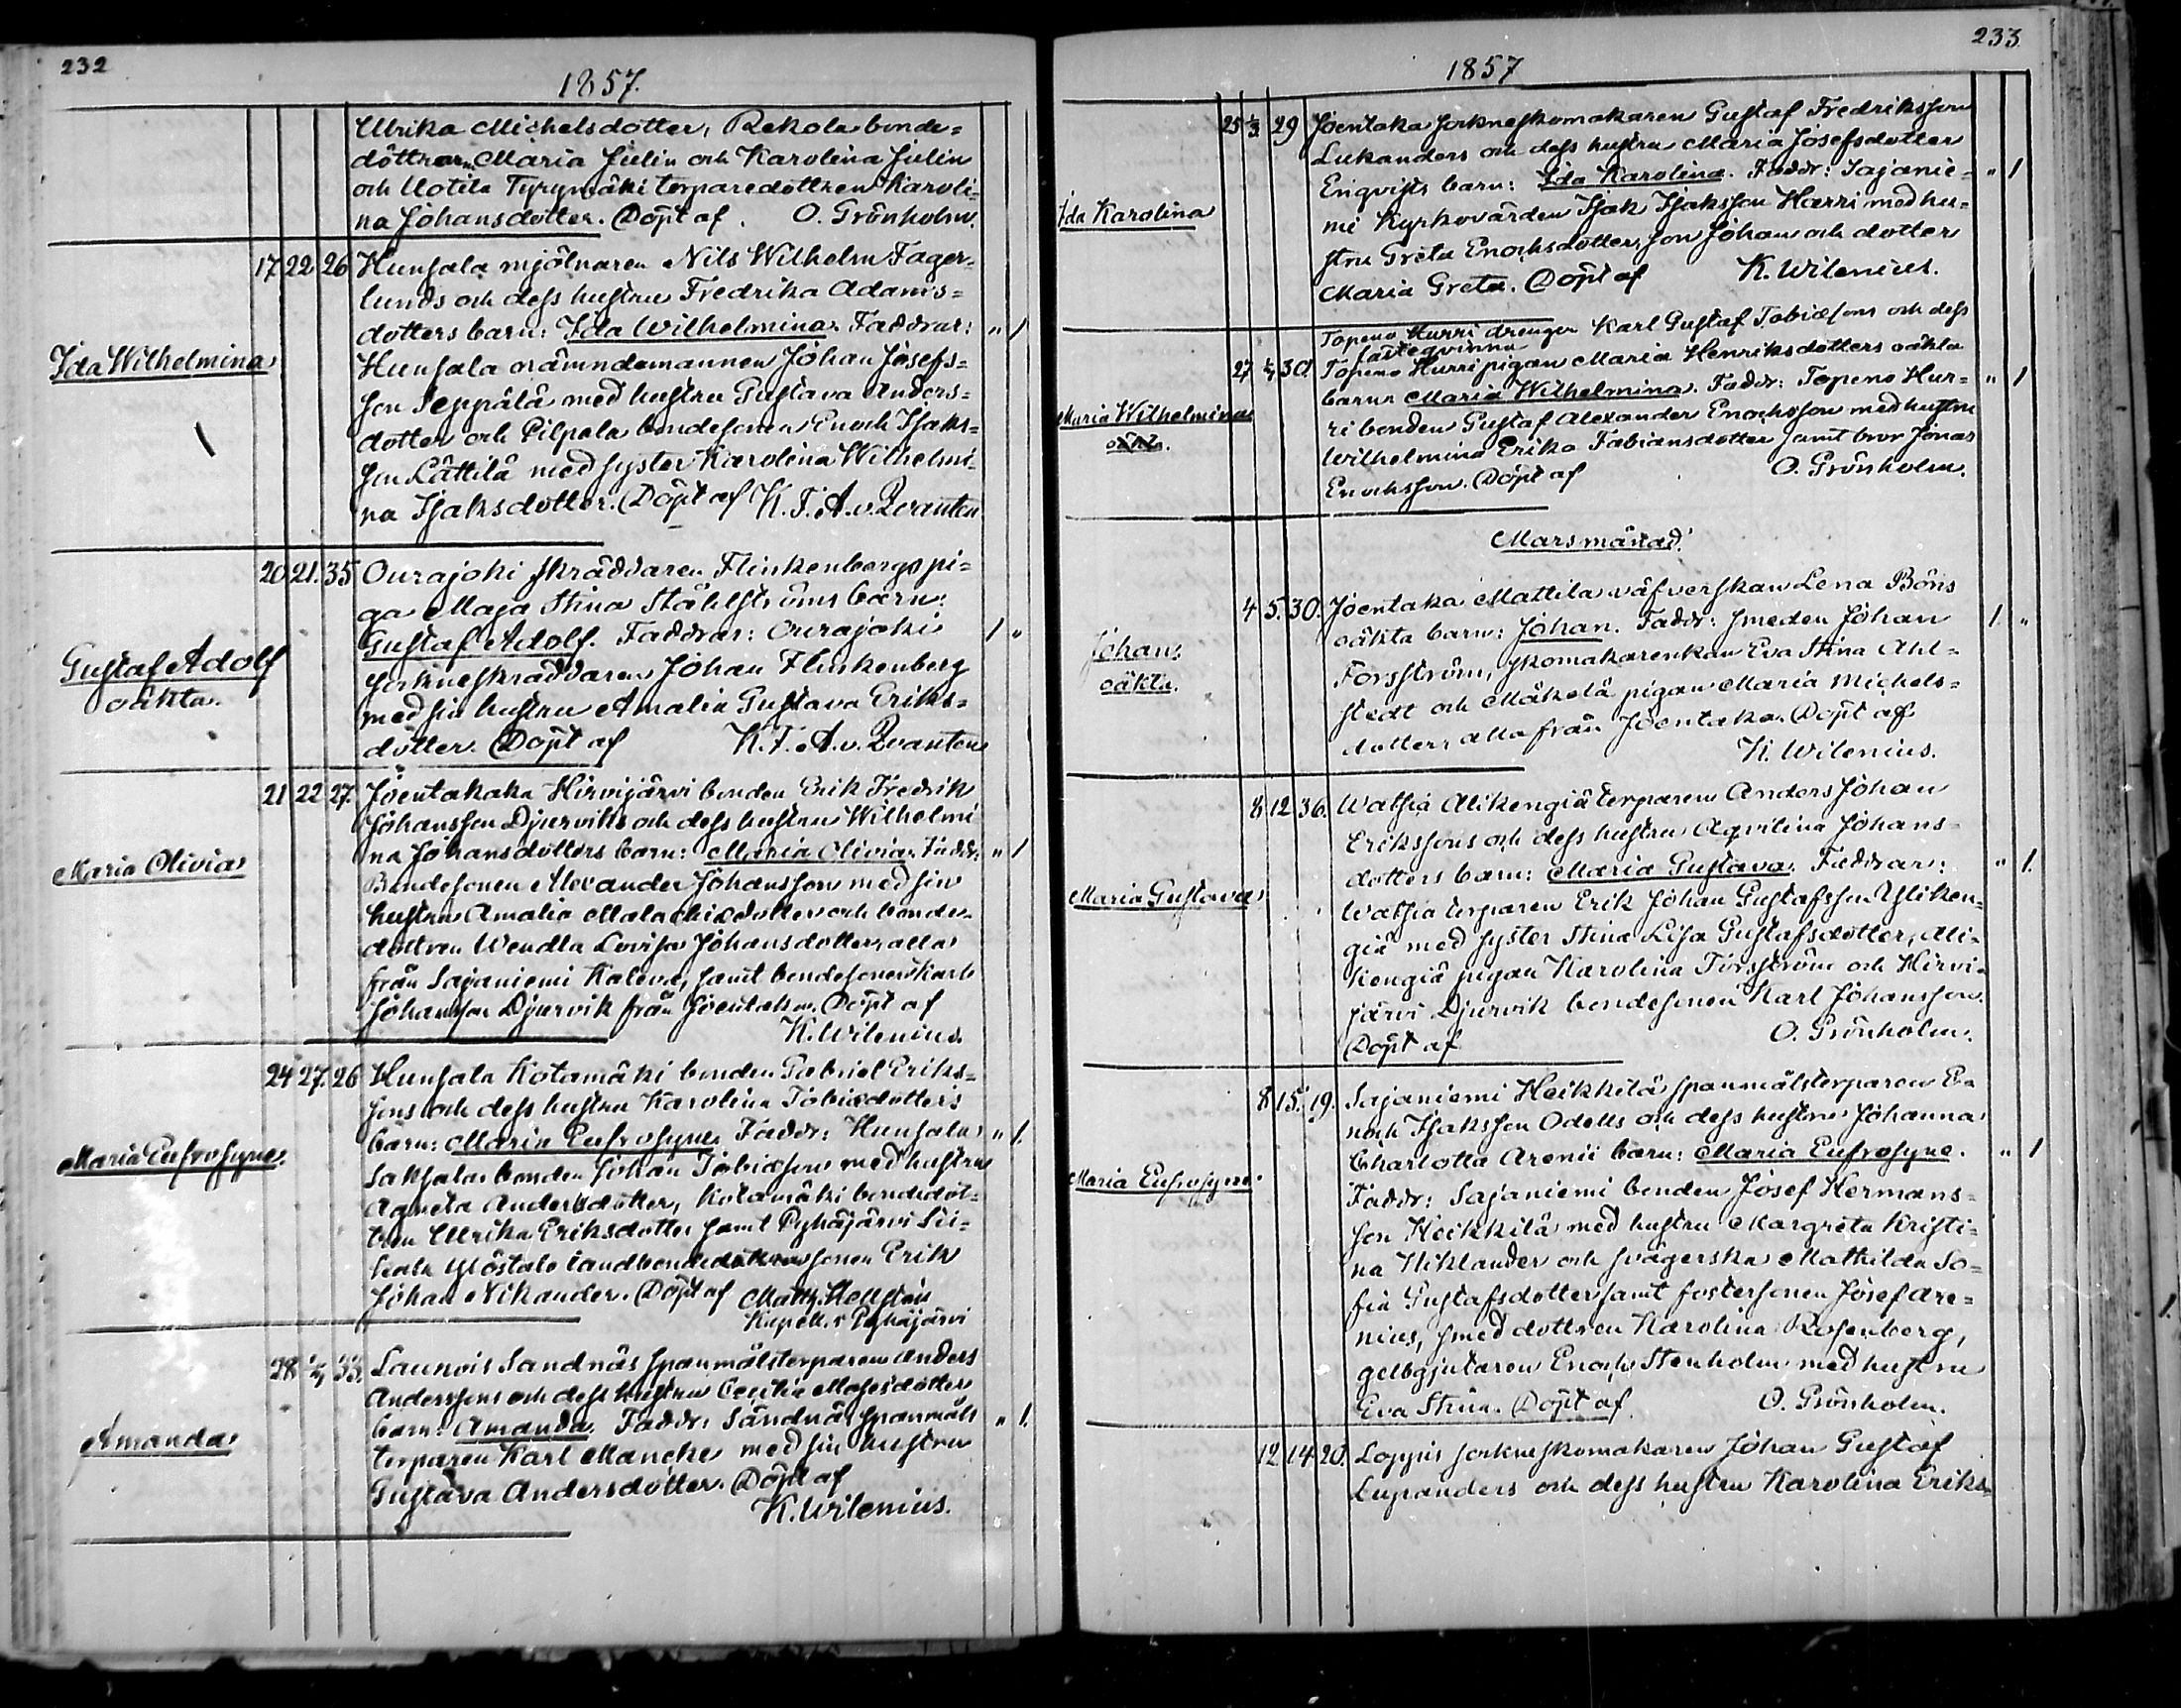 232
1857.
Ulrika Michelsdotter, Rekola bonde=
döttrarn Maria Julin och Karolina Julin
och Uotila Tyrymäki torparedottren Karoli=
na Johansdotter. Döpt af O. Grönholm.
17 22 26 Hunsala mjölnaren Nils Wilhelm Fager=
lunds och dess hustru Fredrika Adams=
dotters barn: Ida Wilhelmina. Faddrar: " 1
Ida Wilhelmina
Hunsala nämndemannen Johan Josefs=
son Seppälä med hustru Gustava Anders=
dotter och Pilpala bondesonen Enoch Isaks=
son Lättilä med syster Karolina Wilhelmi=
na Isaksdotter. Döpt af K. F. A. v. Qvanten
20 21. 35 Ourajoki skräddaren Flinkenbergs pi=
ga Maja Stina Ståhlströms barn:
Gustaf Adolf. Faddrar: Ourajoki 1 "
Gustaf Adolf
oäkta.
sockneskräddaren Johan Flinkenberg
med sin hustru Amalia Gustava Eriks=
dotter. Döpt af K. F. A. v. Qvanten
21 22 27. Joentakaka Hirvijärvi bonden Erik Fredrik
Johansson Djurviks och dess hustru Wilhelmi
na Johansdotters barn: Maria Olivia. Faddr: " 1
Maria Olivia
Bondesonen Alexander Johansson med sin
hustru Amalia Malachiædotter och bonde=
dottren Wendla Lovisa Johansdotter, alla
från Sajaniemi Kaleva, samt bondesonen Karl
Johansson Djurvik från Joentaka. Döpt af
K. Wilenius.
24 27. 26 Hunsala Kotamäki bonden Gabriel Eriks=
sons och dess hustru Karolina Tobiædotters
barn: Maria Eufrosyne. Faddr: Hunsala " 1.
Maria Eufrosyne.
Saksala bonden Johan Tobiæson med hustru
Agneta Andersdotter, Kotamäki bondedot=
tren Ulrika Eriksdotter samt Pyhäjärvi
Yöstalo landbonde sonen Erik
Johan Nikander. Döpt af Matth. Hellstén
Kapell. i Pyhäjärvi
28 33. Launois Sandnäs spanmålstorparen Anders
Anderssons och dess hustru Cecilia Mosesdotter
barn: Amanda. Faddr: Sandnäs spanmåls " 1.
Amanda
torparen Karl Mancke med sin hustru
Gustava Andersdotter. Döpt af
K. Wilenius.
233
1857
25 1/3 29 Joentaka sockneskomakaren Gustaf Fredriksson
Lukanders och dess hustru Maria Josefsdotter
Enqvists barn: Ida Karolina. Faddr: Sajanie= " 1
Ida Karolina
mi Kyrkovärden Isak Isaksson Harri med hu=
stru Greta Enochsdotter, son Johan och dotter
Maria Greta. Döpt af K. Wilenius.
Topeno Hurri drengen Karl Gustaf Tobiæsons och dess
fästeqvinna
27 30. Topeno Hurri pigan Maria Henriksdotters oäkta
barn Maria Wilhelmina. Faddr: Topeno Hur= " 1
Maria Wilhelmina
oäkta.
ri bonden Gustaf Alexander Enochsson med hustru
Wilhelmina Erika Fabiansdotter samt bror Jonas
Enochsson. Döpt af O. Grönholm.
Mars månad.
4 5. 30. Joentaka Mattila väfverskan Lena Böns
oäkta barn: Johan. Faddr: smeden Johan 1. "
Johan
oäkta.
Forsström, skomakarenkan Eva Stina Ahl=
stedt och Mäkelä pigan Maria Michels=
dotter, alla från Joentaka. Döpt af
K. Wilenius.
8 12 36. Watsia Alikengiä torparen Anders Johan
Erikssons och dess hustru Aqvilina Johans=
dotters barn: Maria Gustava. Faddrar: " 1.
Maria Gustava
Watsia torparen Erik Johan Gustafsson Yliken=
giä med syster Stina Lisa Gustafsdotter, Ali=
kengiä pigan Karolina Forsström och Hirvi=
järvi Djurvik bondesonen Karl Johansson.
Döpt af O. Grönholm.
8 15. 19. Sajaniemi Heikkilä spanmålstorparen E=
noch Isaksson Odells och dess hustru Johanna
Charlotta Arenii barn: Maria Eufrosyne. " 1
Maria Eufrosyne
Faddr: Sajaniemi bonden Josef Hermans=
son Heikkilä med hustru Margreta Kristi=
na Wiklander och svägerska Mathilda So=
fia Gustafsdotter samt fostersonen Josef Are=
nius, smeddottren Karolina Rosenberg,
gelbgjutaren Enoch Stenholm med hustru
Eva Stina. Döpt af O. Grönholm.
12 14 20. Loppis sockneskomakaren Johan Gustaf
Lupanders och dess hustru Karolina Eriks=